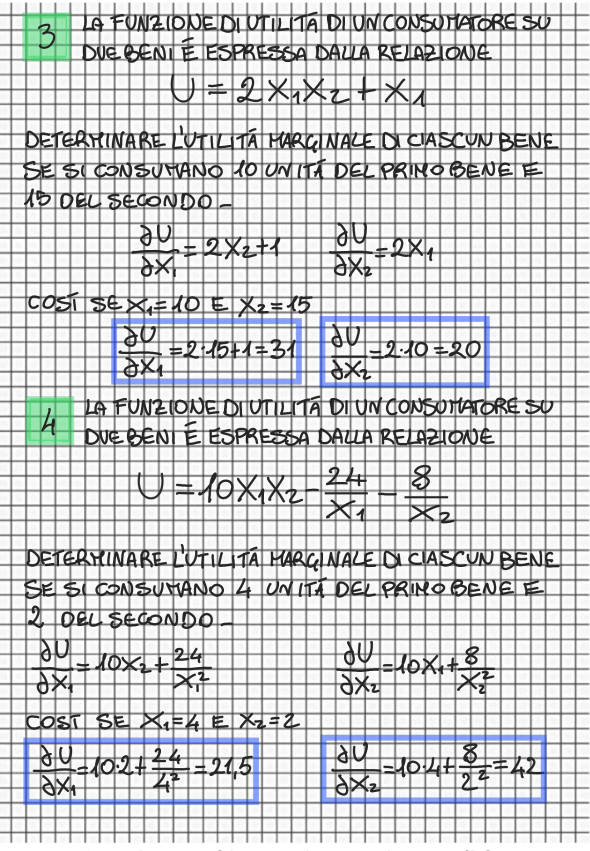 3 LA FUNZIONE DI UTILITÀ DI UN CONSUMATORE SU
DUE BENI È ESPRESSA DALLA RELAZIONE
U = 2X₁X₂ + X₁
DETERMINARE L'UTILITÀ MARGINALE DI CIASCUN BENE
SE SI CONSUMANO 10 UNITÀ DEL PRIMO BENE E
15 DEL SECONDO –
∂U/∂X₁ = 2X₂+1 ∂U/∂X₂ = 2X₁
COSÌ SE X₁=10 E X₂=15
∂U/∂X₁ = 2·15+1=31 ∂U/∂X₂ = 2·10=20
4 LA FUNZIONE DI UTILITÀ DI UN CONSUMATORE SU
DUE BENI È ESPRESSA DALLA RELAZIONE
U = 10X₁X₂ – 24/X₁ – 8/X₂
DETERMINARE L'UTILITÀ MARGINALE DI CIASCUN BENE
SE SI CONSUMANO 4 UNITÀ DEL PRIMO BENE E
2 DEL SECONDO –
∂U/∂X₁ = 10X₂ + 24/X₁² ∂U/∂X₂ = 10X₁ + 8/X₂²
COSÌ SE X₁=4 E X₂=2
∂U/∂X₁ = 10·2 + 24/4² = 21,5 ∂U/∂X₂ = 10·4 + 8/2² = 42